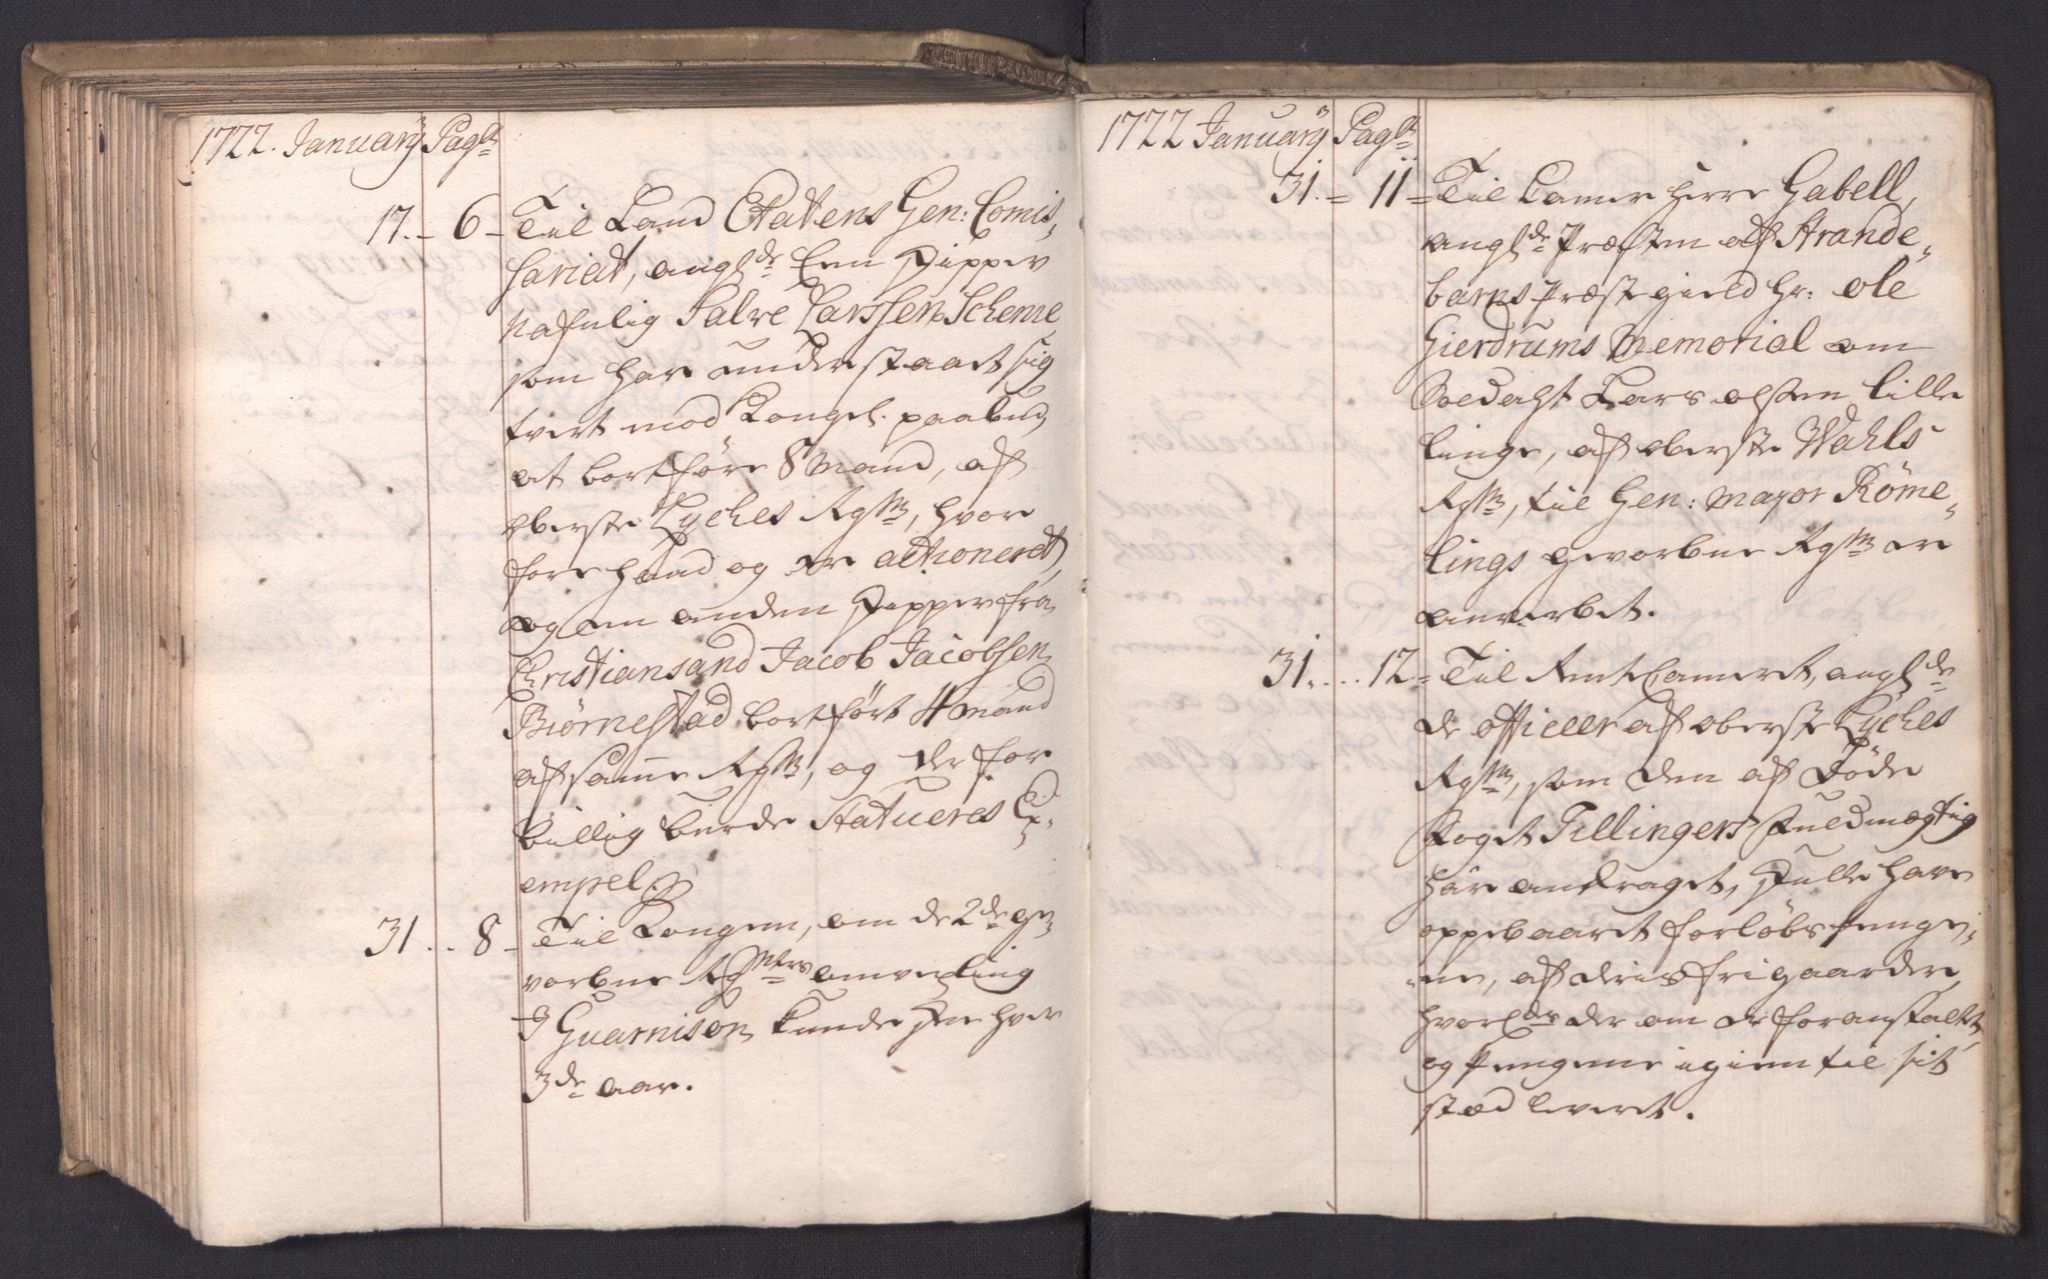 1722. January Pag:
17. – 6 – Til Land Etatens Gen: Comis,
sariat, angl:de Een Skipper
nafnlig Salve Larssen Scheme
som har understaaet sig
tvert mod Kongel. paabud
at bortføre 8 Mand, af
Oberste Lyches Rgtt, hvor
fore hand og er actioneret,
og en anden Skipper fra
Christiansand Jacob Jacobsen
Biørnestad bortført 4 mand
af samme Rgtt, og derfor
billig burde statueres Ex,
empel.
31 .. 8 – Til Kongen, om de 2de ge,
vorbne Rgtters omvexling
I Guarnison kunde skee hver
3de aar.
1722 January Pag:
31. – 11 – Til Camer Herre Gabell,
angl:de Præsten af Strande,
barms Præstegield Hr: Ole
Gierdrums Memorial om
Soldat Lars Olsen Lille
linge, af Oberste Wahls
Rgtt, til Gen: Mayor Röme,
lings gevorbne Rgtt er
anverbet.
31. .. 12 – Til Rent Cameret, angl:de
de officerer af Oberste Lyches
Rgtt, som den af döde
Foget Tellingers Fuldmægtig
har andraget, skulle have
oppebaaret forløbs penge,
ne, af deris frigaarder,
hvorl:des der om er foranstaltet,
og Pengene igien til sit
stæd leveret.